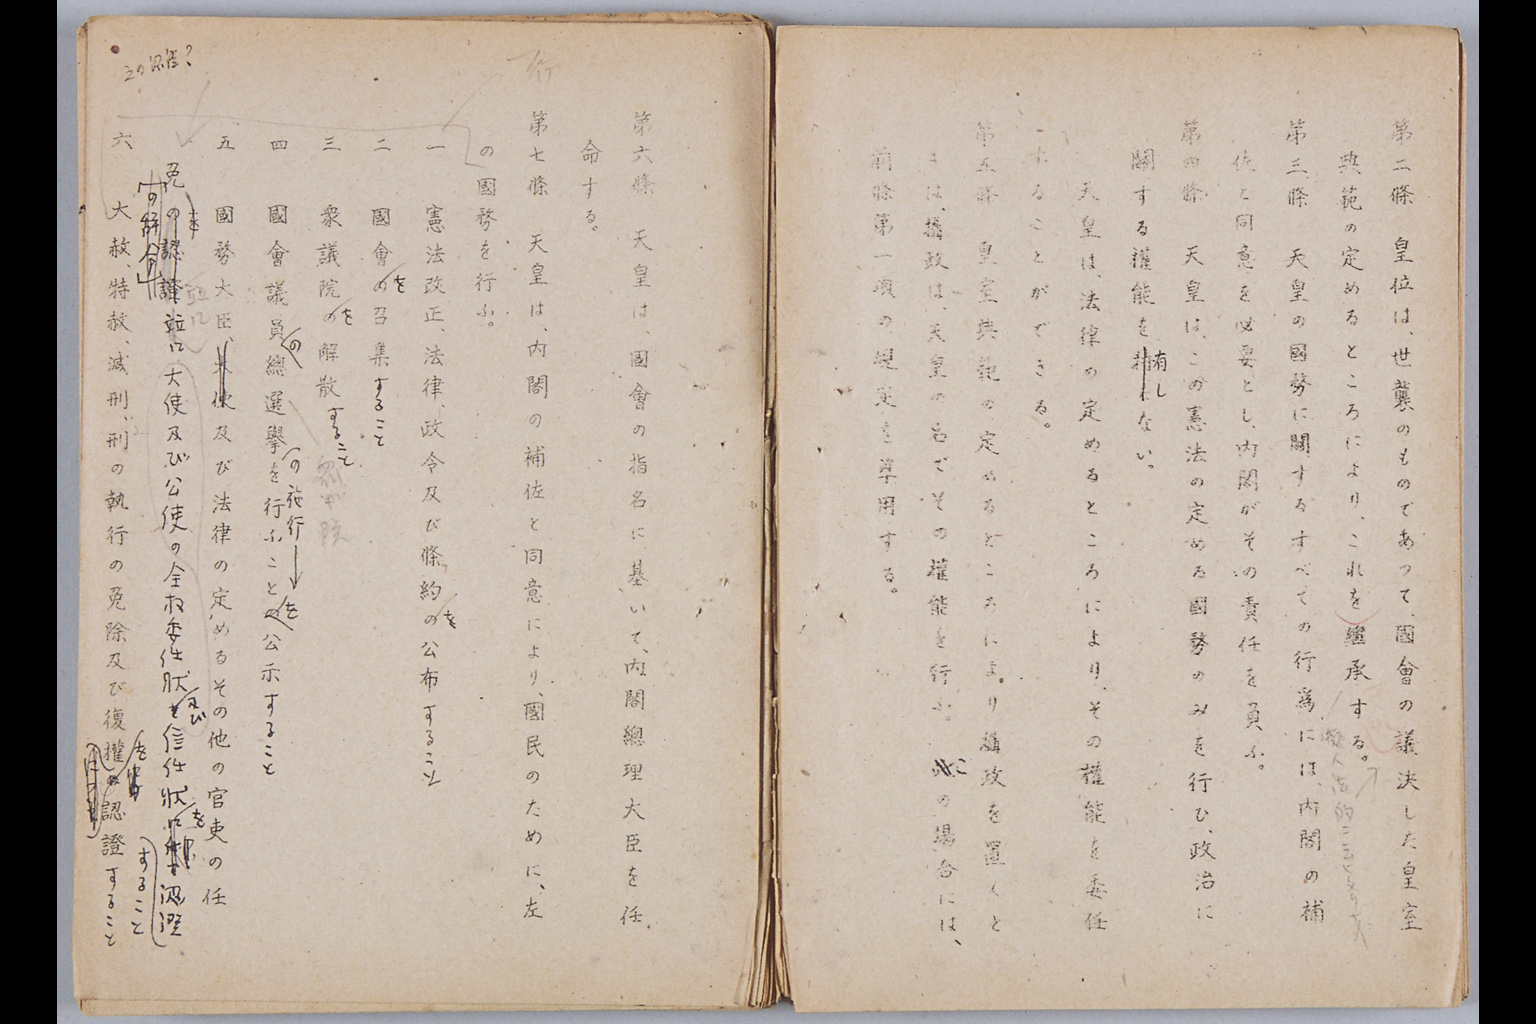 第二條 皇位は、世襲のものであつて、國會の議決した皇室
典範の定めるところにより、これを繼承する。
第三條 天皇の國務に關するすべての行爲には、内閣の補
佐と同意を必要とし、内閣がその責任を負ふ。
第四條 天皇は、この憲法の定める國務のみを行ひ、政治に
關する權能を有しない。
天皇は、法律の定めるところにより、その權能を委任
することができる。
第五條 皇室典範の定めるところにより攝政を置くと
きは、攝政は、天皇の名でその權能を行ふ。この場合には、
前條第一項の規定を準用する。
第六條 天皇は、國會の指名に基いて、内閣總理大臣を任
命する。
第七條 天皇は、内閣の補佐と同意により、國民のために、左
の國務を行ふ。
一 憲法改正、法律、政令及び條約のを公布すること
二 國會のを召集すること
三 衆議院のを解散すること
參議院
四 國會議員の總選擧を行ふこと公示すること
の施行を
五 國務大臣、及び法律の定めるその他の官吏の任
免の認證並に大使及び公使の全權委任狀及び信任狀を認證
すること
六 大赦、特赦、減刑、刑の執行の免除及び復權を認證すること
行